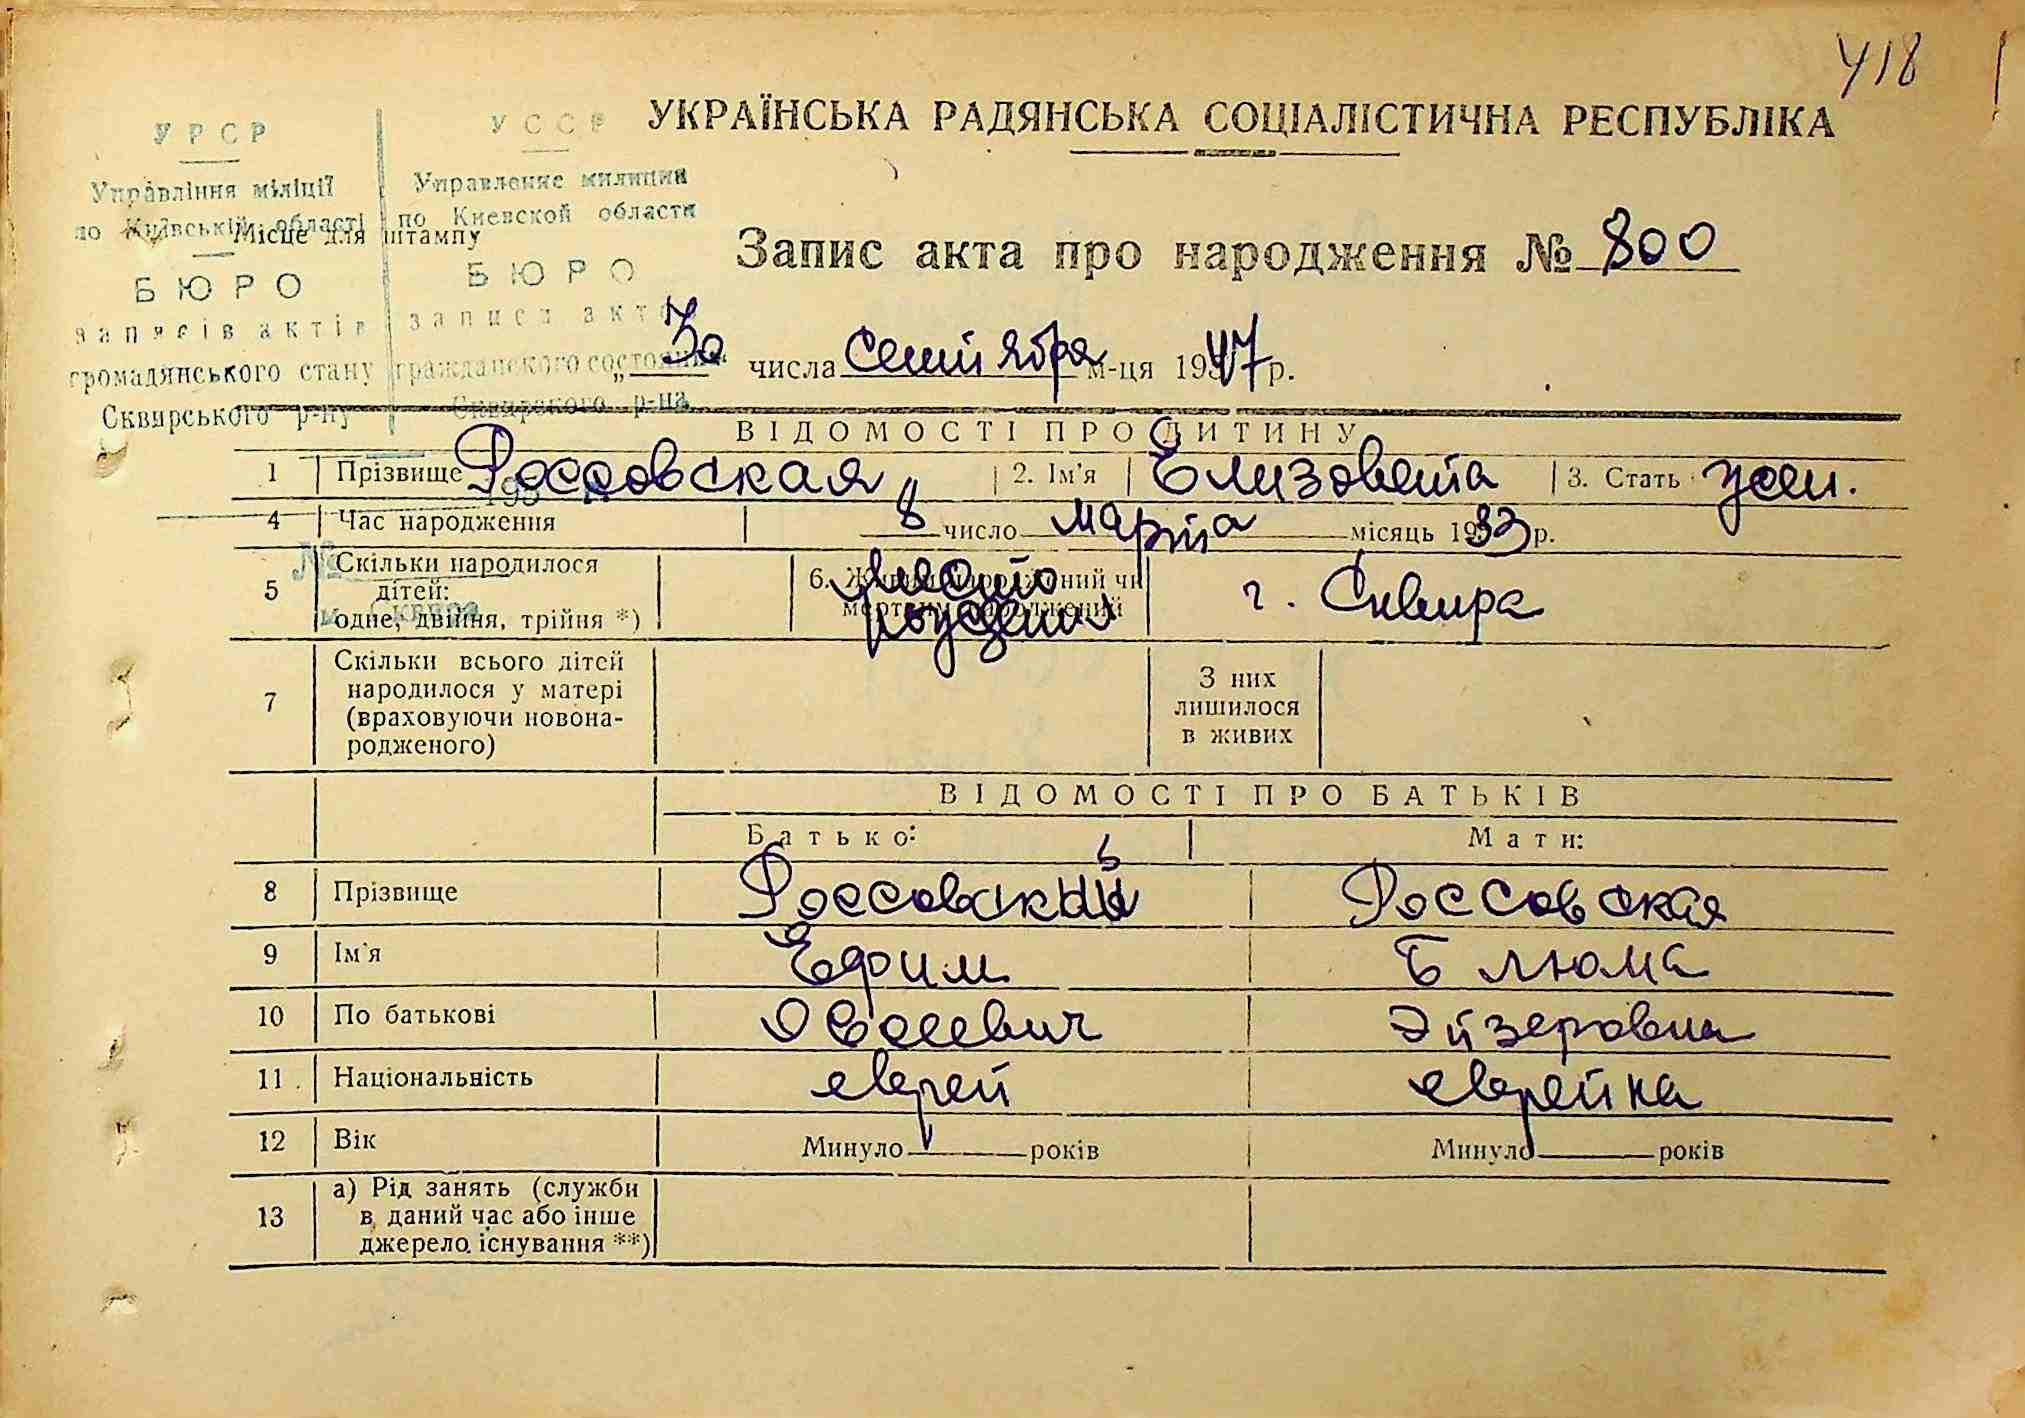 418
УРСР
Управління міліції
по Київській області
БЮРО
записів актів
громадянського стану
Сквирського р-ну
УССР
Управление милиции
по Киевской области
БЮРО
записи акто
гражданского состояния
Сквирского р-на
195
№
м. Сквира
Місце для штампу
УКРАЇНСЬКА РАДЯНСЬКА СОЦІАЛІСТИЧНА РЕСПУБЛІКА
Запис акта про народження № 800
„30“ числа сентября м-ця 1947 р.
ВІДОМОСТІ ПРО ДИТИНУ
1 Прізвище Россовская 2. Ім'я Елизовета 3. Стать жен.
4 Час народження 8 число марта місяць 1933 р.
5 Скільки народилося дітей: одне, двійня, трійня *) 6. Живим народжений чи мертвим народжений место рождения г. Сквира
7 Скільки всього дітей народилося у матері (враховуючи новонародженого) З них лишилося в живих
ВІДОМОСТІ ПРО БАТЬКІВ
Батько: Мати:
8 Прізвище Россовский Россовская
9 Ім'я Ефим Блюма
10 По батькові Овсеевич Эйзеровна
11. Національність еврей еврейка
12 Вік Минуло років Минуло років
13 а) Рід занять (служби
в даний час або інше
джерело існування **)